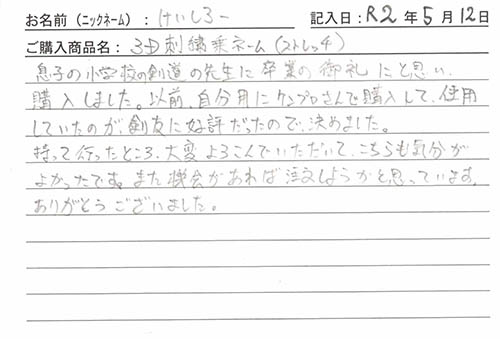 お名前（ニックネーム）：けいしろー 記入日：R2年5月12日
ご購入商品名：3D刺繍乗ネーム（ストレッチ）
息子の小学校の剣道の先生に卒業の御礼にと思い、
購入しました。以前、自分用にケンプロさんで購入して、使用
していたのが、剣友に好評だったので、決めました。
持って行ったところ、大変よろこんでいただいて、こちらも気分が
よかったです。また機会があれば注文しようかと思っています。
ありがとうございました。